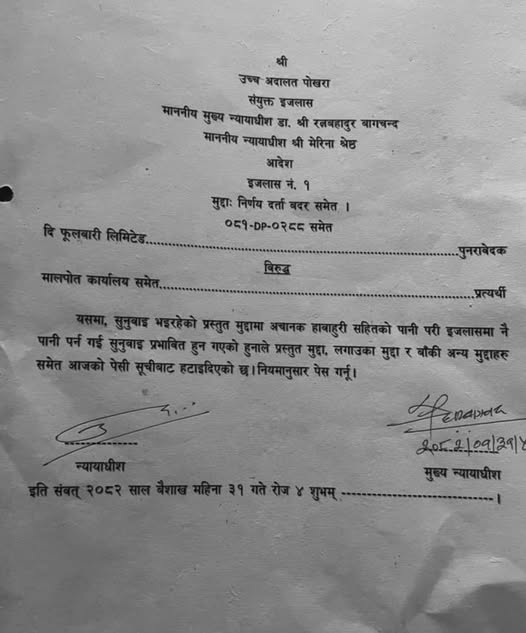 श्री
उच्च अदालत पोखरा
संयुक्त इजलास
माननीय मुख्य न्यायाधीश डा. श्री रत्नबहादुर बागचन्द
माननीय न्यायाधीश श्री मेरिना श्रेष्ठ
आदेश
इजलास नं. १
मुद्दाः निर्णय दर्ता बदर समेत ।
०८१-DP-०२८८ समेत
दि फूलबारी लिमिटेड..........................................................पुनरावेदक
विरुद्ध
मालपोत कार्यालय समेत..........................................................प्रत्यर्थी
यसमा, सुनुबाइ भइरहेको प्रस्तुत मुद्दामा अचानक हाबाहुरी सहितको पानी परी इजलासमा नै
पानी पर्न गई सुनुबाइ प्रभावित हुन गएको हुनाले प्रस्तुत मुद्दा, लगाउका मुद्दा र बाँकी अन्य मुद्दाहरु
समेत आजको पेसी सूचीबाट हटाइदिएको छ। नियमानुसार पेस गर्नू।
२०८२|०१|३१|४
न्यायाधीश
मुख्य न्यायाधीश
इति संवत् २०८२ साल बैशाख महिना ३१ गते रोज ४ शुभम् ----------------------------।